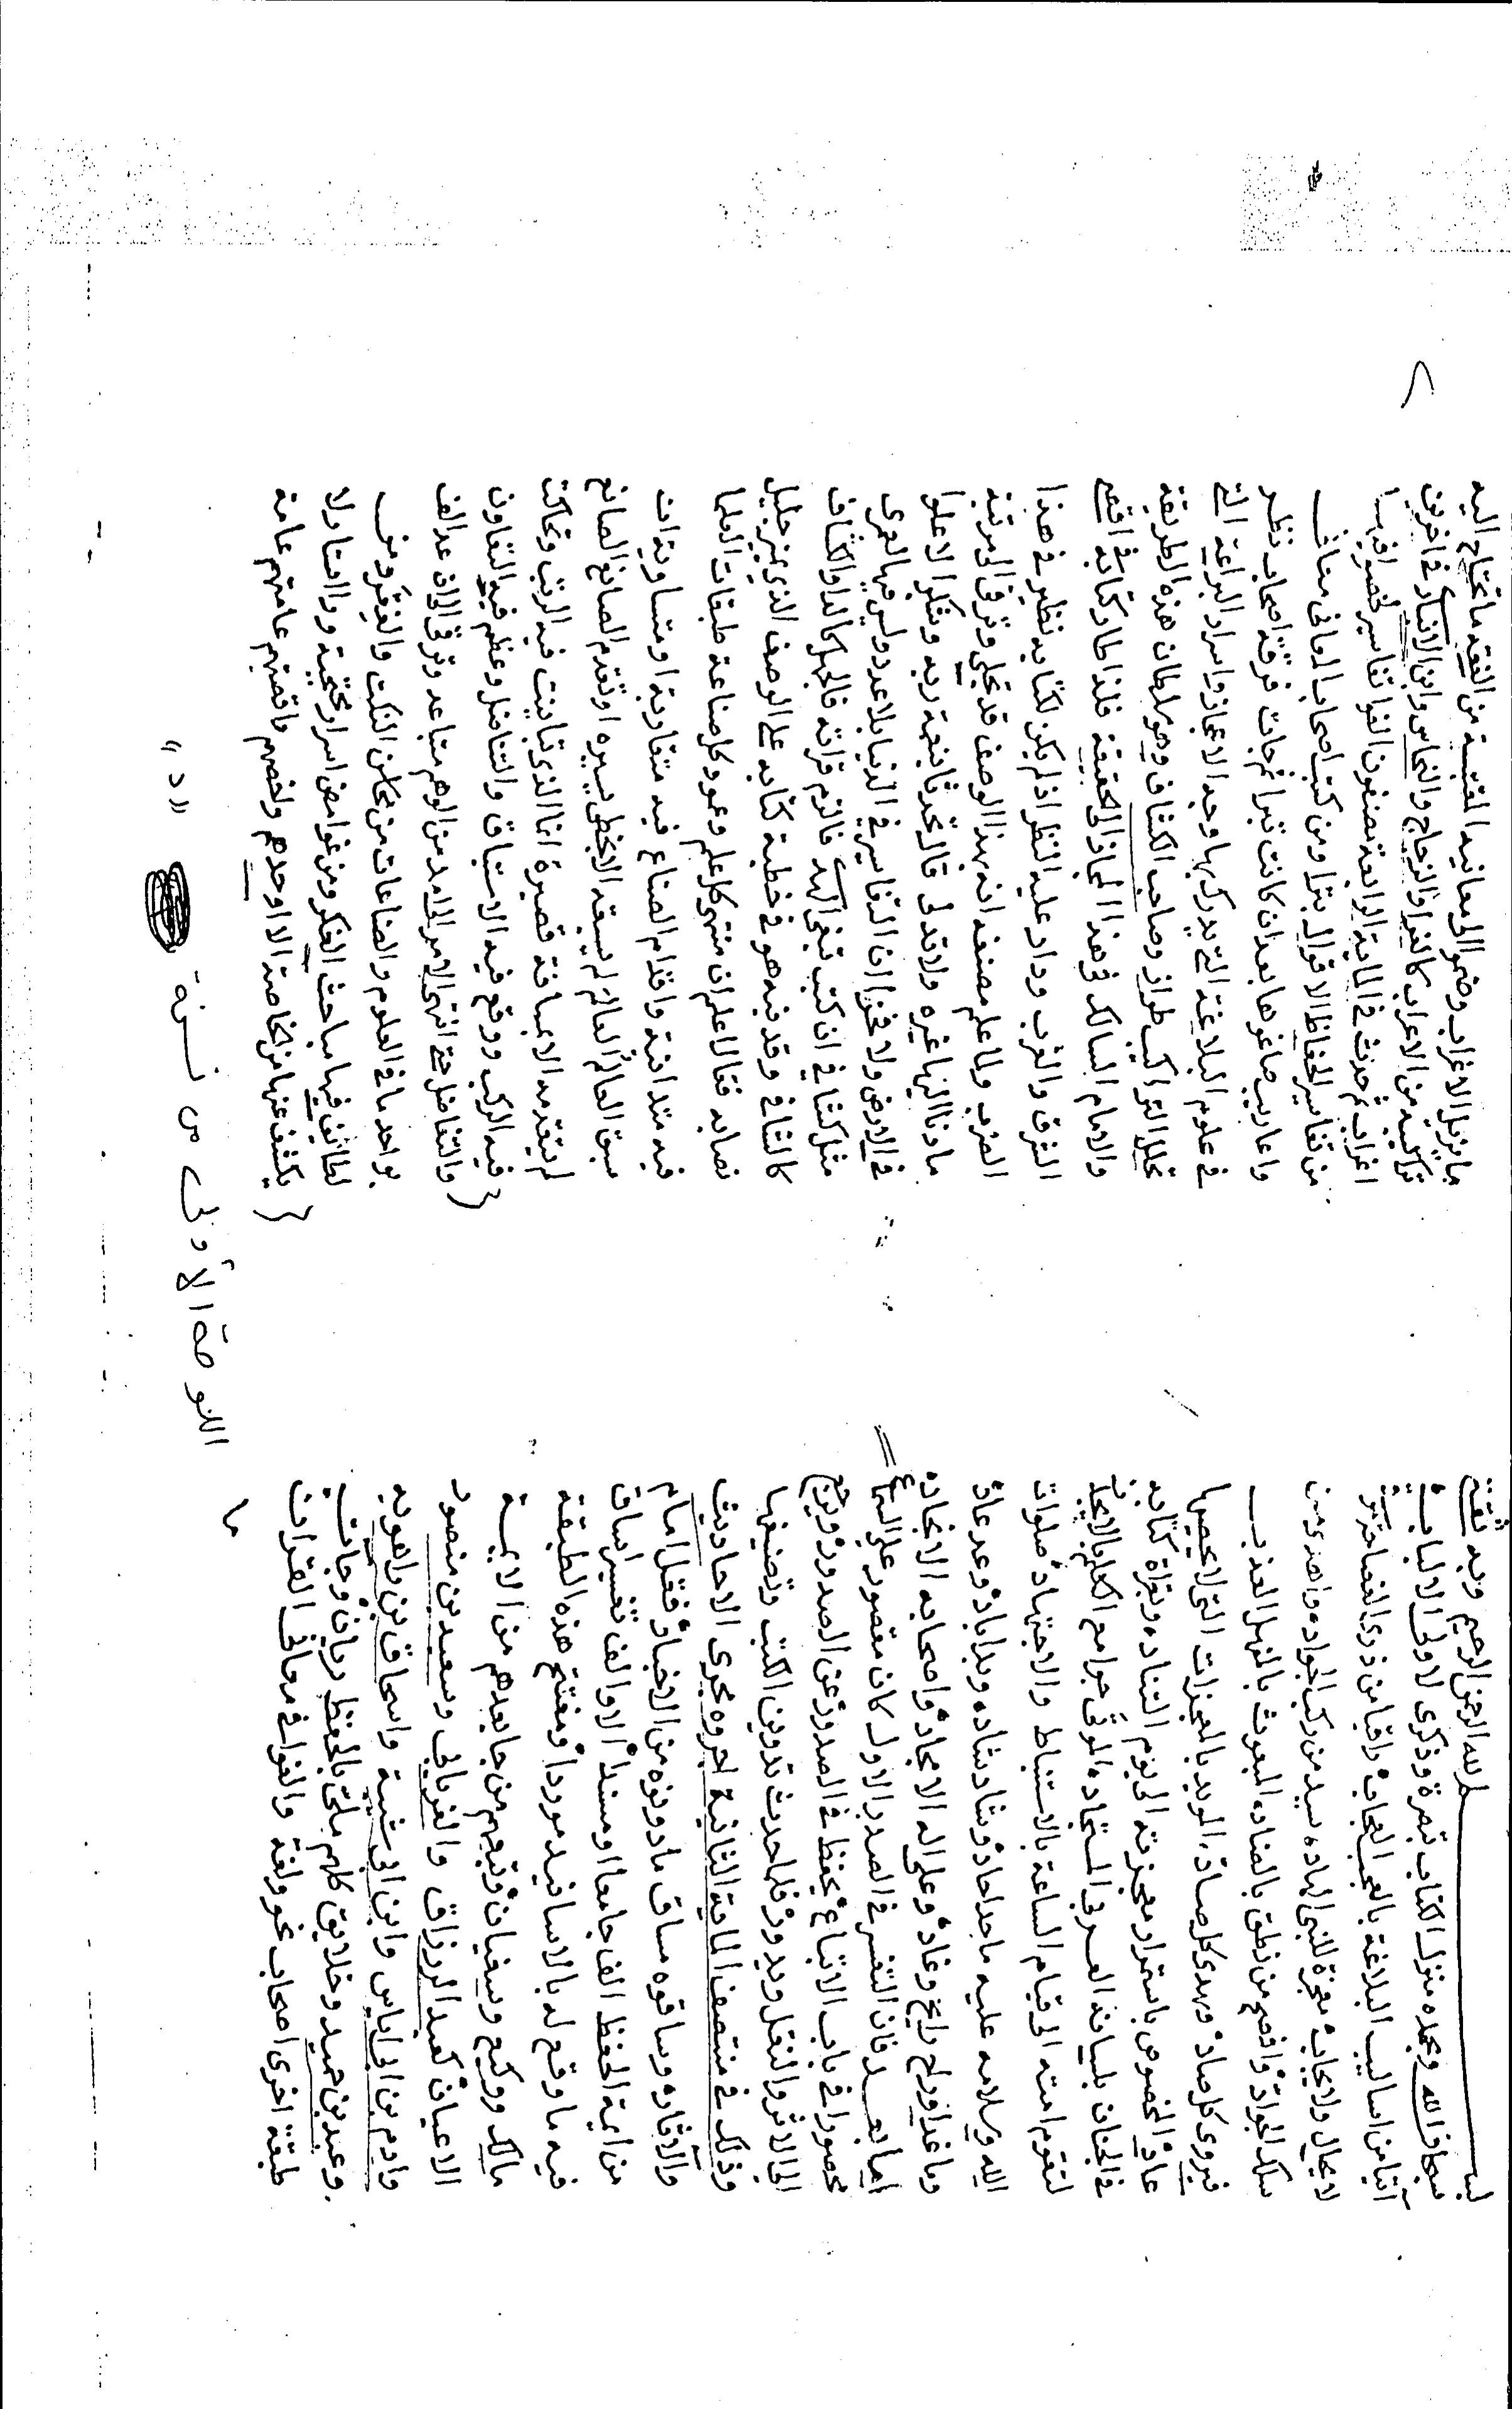 بسم الله الرحمن الرحيم وبه ثقتي
سبحان الله وبحمده منزل الكتاب تبصرة وذكرى لاولى الالباب
آتيا من اساليب البلاغة بالعجب العجاب راقيا من ذرى الفصاحة
لا يجال ولا يجاب معجزة للنبى الهاد، سيد من ركب الجواد، واهدى من
سلك الجواد، وافصح من نطق بالضاد، المبعوث بالمنهل العذب
فيروى كل صاد، ويهدى كل صاد، المويد بالمعجزات التى لا يحصيها
عاد، المخصوص باستمرار معجزته الى يوم التناد، وبقراة كتابه
فى الجنان بلسانه العربى المستجاد، الموتى جوامع الكلم
لتقوم امته الى قيام الساعة بالاستنباط والاجتهاد، صلوات
الله وسلامه عليه ما جد اجاد، وشاد شاد، وبدا باد، وعد عاد،
وما غدا وراح رايح وغاد، وعلى اله الامجاد، واصحابه الانجاد،
اما بعد فان التفسير فى الصدر الاول كان مقصورا على السماع
محصورا فى باب الاتباع، يحفظ فى الصدور، عن الصدور ويرجع
الى الاثر والنقل ويدور، فلما حدث تدوين الكتب وتصنيفها
وذلك فى منتصف الماية الثانية اجروه مجرى الاحاديث
والآثار، وساقوه مساق ما دونوه من الاخبار، فقل امام
من ايمة الحفظ الف جامعا او مسندا، الا والف تفسيرا ساق
فيه ما وقع له بالاسانيد موردا، ومفتتح هذه الطبقة
مالك ووكيع وسفيان، وتبعهم من جا بعدهم من الايمة
الاعيان، كعبد الرزاق والفريابى وسعيد بن منصور
وادم بن ابى اياس وابن ابى شيبة واسحاق بن راهويه
وعبد بن حميد وخلايق كلهم ملئ بالحفظ ريان، وجات
طبقة اخرى اصحاب نحو ولغة والفوا فى معانى القران
ما
بما يزيل الاغراب وضموا الى معانيه المقتبسة من اللغة ما تحتاج اليه
تراكيبه من الاعراب كالفرا والزجاج والنحاس وابن الانبارى فى اخرين
اغراب ثم حدث فى الماية الرابعة مصنفون الفوا تفاسير لخصوا فيها
من تفاسير الحفاظ الاقوال بترا ومن كتب اصحاب المعانى معانى
واعاريب صاغوها بعد ان كانت تبرا ثم جات فرقة اصحاب نظر
فى علوم البلاغة التى يدرك بها وجه الاعجاز واسرار البراعة التى
تحلل التراكيب طراز وصاحب الكشاف هو سلطان هذه الطريقة
والامام السالك فى هذا المجاز الى الحقيقة فلذا طار كتابه فى اقصى
الشرق والغرب ودار عليه النظر اذ لم يكن لكتابه نظير فى هذا
الضرب ولما علم مصنفه انه بهذا الوصف قد تحلى وترقى الى مرتبة
ما دنا اليها غيره ولا تدلى قال تحدثا بنعمة ربه وشكرا لا علوا
فى الارض ولا فخرا ان التفاسير فى الدنيا بلا عدد وليس فيها لعمرى
مثل كشافى ان كنت تبغى الهدى فالزم قراته فالجهل كالدا والكشاف
كالشافى وقد نبه هو فى خطبة كتابه على الوصف الذى تميز جليل
نصابه فقال اعلم ان متن كل علم وعمود كل صناعة طبقات العلما
فيه متدانية واقدام الصناع فيه متقاربة او متساوية ان
سبق العالم العالم لم يسبقه الا بخطى يسيرة او تقدم الصانع الصانع
لم يتقدمه الا بمسافة قصيرة انما الذى تباينت فيه الرتب وتحاكت
فيه الركب ووقع فيه الاستباق والتناضل وعظم فيه التفاوت
والتفاضل حتى انتهى الامر الى امد من الوهم متباعد وترقى الى ان عد الف
بواحد ما فى العلوم والصناعات من محاسن النكت والفقر ومن
لطايف فيها مباحث الفكر ومن غوامض اسرار محتجبة ورا استار ولا
يكشف عنها من الخاصة الا اوحدهم واخصهم واقصيهم عامتهم عامة
اللوحة الأولى من نسخة
«د»